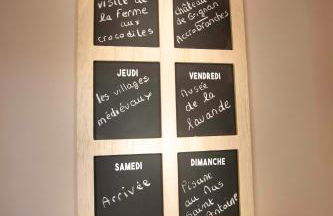 visite de
la ferme
aux
crocodiles
château
de Grignan
Accrobranches
JEUDI
les villages
médiévaux
VENDREDI
Musée
de la
lavande
SAMEDI
Arrivée
DIMANCHE
Piscine
au Mas
Saint
Antoine